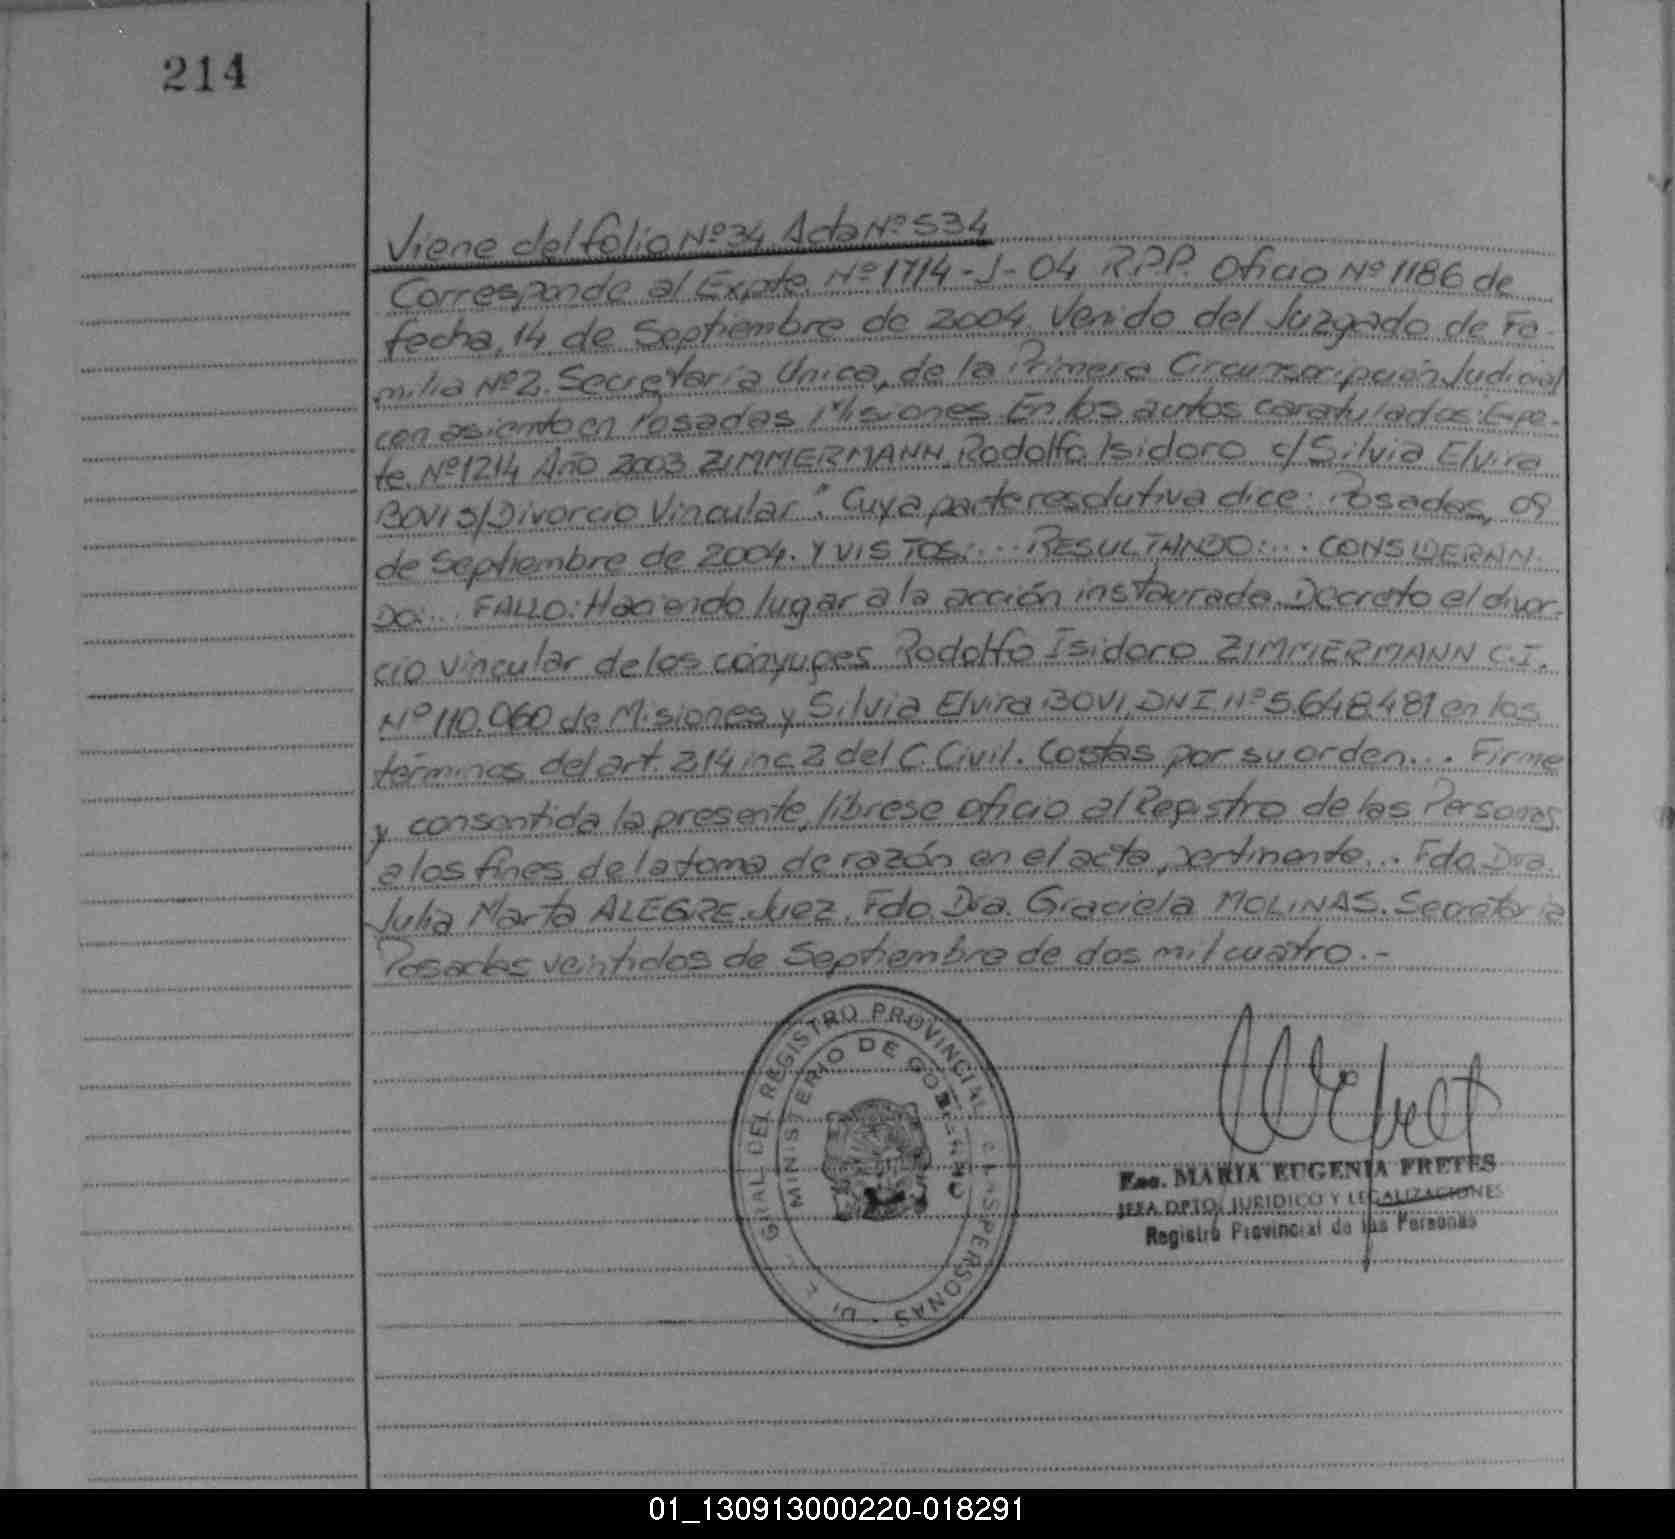 214
Viene del folio Nº34 Acta Nº534
Corresponde al Expte Nº1714-J-04 R.P.P. Oficio Nº1186 de
fecha, 14 de Septiembre de 2004. Venido del Juzgado de Fa-
milia Nº2. Secretaría Unica, de la Primera Circunscripción Judicial
con asiento en Posadas Misiones En los autos caratulados: Expe-
te. Nº1214 Año 2003 ZIMMERMANN, Rodolfo Isidoro c/ Silvia Elvira
BOVI S/Divorcio Vincular". Cuya parte resolutiva dice: Posadas, 09
de Septiembre de 2004. Y VISTOS:... RESULTANDO:... CONSIDERAN-
DO:... FALLO: Haciendo lugar a la acción instaurada. Decreto el divor-
cio vincular de los cónyuges Rodolfo Isidoro ZIMMERMANN C.I.
Nº110.060 de Misiones y Silvia Elvira BOVI, DNI Nº5.648.481 en los
términos del art. 214 inc 2 del C. Civil. Costas por su orden... Firme
y consentida la presente, líbrese oficio al Registro de las Personas
a los fines de la toma de razón en el acta pertinente... Fdo. Dra.
Julia Marta ALEGRE. Juez. Fdo. Dra. Graciela MOLINAS. Secretaria
Posadas veintidos de Septiembre de dos mil cuatro.-
GRAL DEL REGISTRO PROVINCIAL PERSONAS
MINISTERIO DE GOBIERNO
Esc. MARIA EUGENIA FRETES
JEFA DPTO. JURIDICO Y LEGALIZACIONES
Registro Provincial de las Personas
01_130913000220-018291